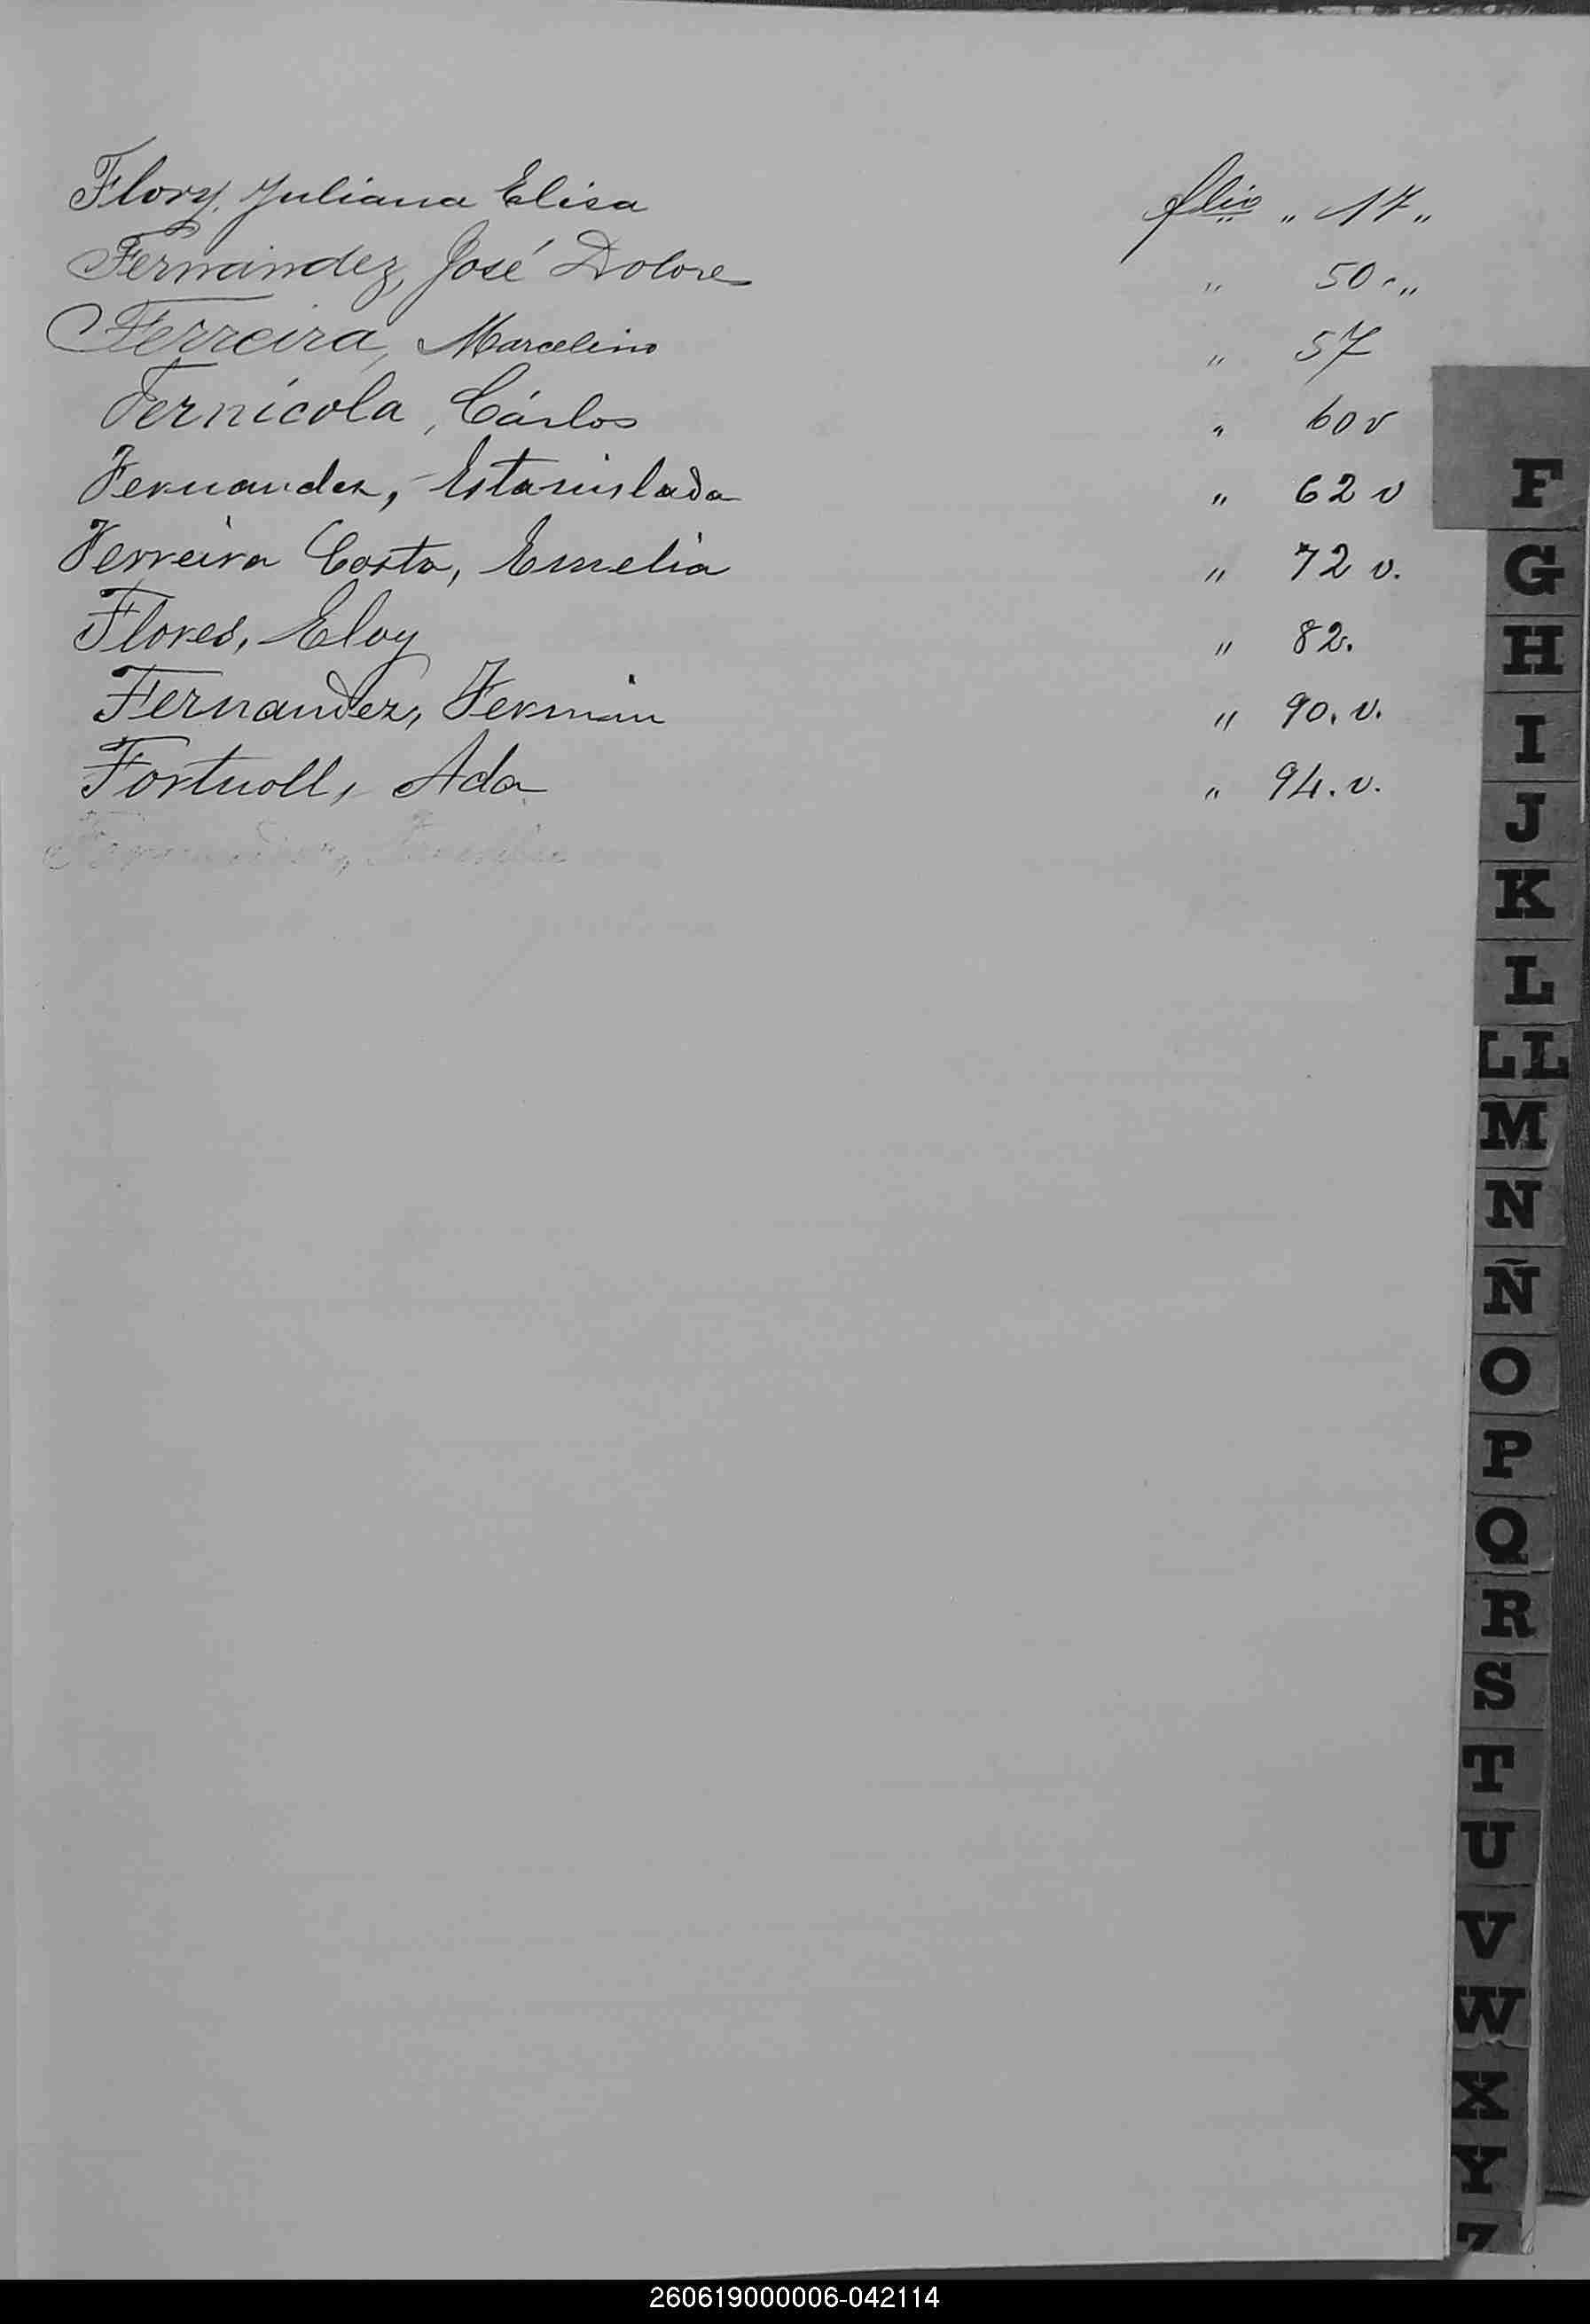 Flory, Juliana Elisa flio " 17 "
Fernández, José Dolores " 50 " "
Ferreira, Marcelino " 57
Fernícola, Cárlos " 60 v
Fernandez, Estanislada " 62 v
Ferreira Costa, Emelia " 72 v.
Flores, Eloy " 82.
Fernandez, Fermin " 90. v.
Fortuoll, Ada " 94. v.
F
G
H
I
J
K
L
LL
M
N
Ñ
O
P
Q
R
S
T
U
V
W
X
Y
Z
260619000006-042114